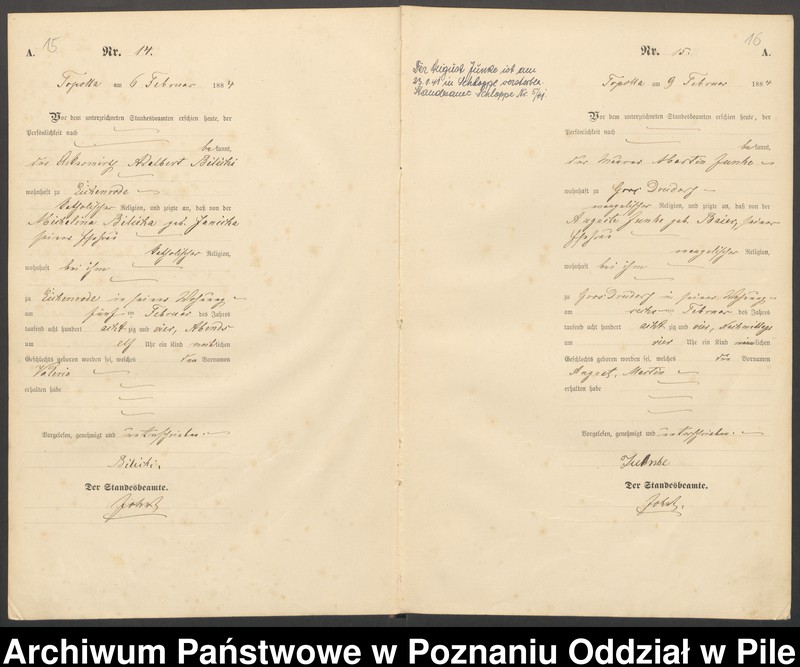 15
A.
Nr. 14.
Topolla am 6 Februar 1884
Vor dem unterzeichneten Standesbeamten erschien heute, der
Persönlichkeit nach
bekannt,
der Adalbert Bilicki
wohnhaft zu Eichenrode
katholischer Religion, und zeigte an, daß von der
Michalina Bilicka geb. Janicka
seiner Ehefrau
katholischer Religion,
wohnhaft bei ihm
zu Eichenrode in seiner Wohnung
am fünften Februar des Jahres
tausend acht hundert achtzig und vier, Abends
um elf Uhr ein Kind weiblichen
Geschlechts geboren worden sei, welches den Vornamen
Valeria
erhalten habe
Vorgelesen, genehmigt und unterschrieben.
Bilicki.
Der Standesbeamte.
Der August Junke ist am
in Schloppe verstorben.
Standesamt Schloppe Nr. 5/41.
16
Nr. 15.
A.
Topolla am 9 Februar 1884
Vor dem unterzeichneten Standesbeamten erschien heute, der
Persönlichkeit nach
bekannt,
der Martin Junke
wohnhaft zu Gross Drensdorf
evangelischer Religion, und zeigte an, daß von der
Auguste Junke geb. Baier, seiner
Ehefrau
evangelischer Religion,
wohnhaft bei ihm
zu in seiner Wohnung
am sechsten Februar des Jahres
tausend acht hundert achtzig und vier, Nachmittags
um vier Uhr ein Kind männlichen
Geschlechts geboren worden sei, welches die Vornamen
August, Martin
erhalten habe
Vorgelesen, genehmigt und unterschrieben.
Der Standesbeamte.
Archiwum Państwowe w Poznaniu Oddział w Pile